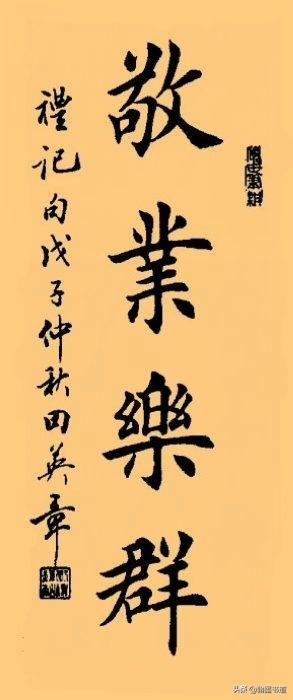 敬業樂群
禮記句戊子仲秋田英章
头条@翰墨书道